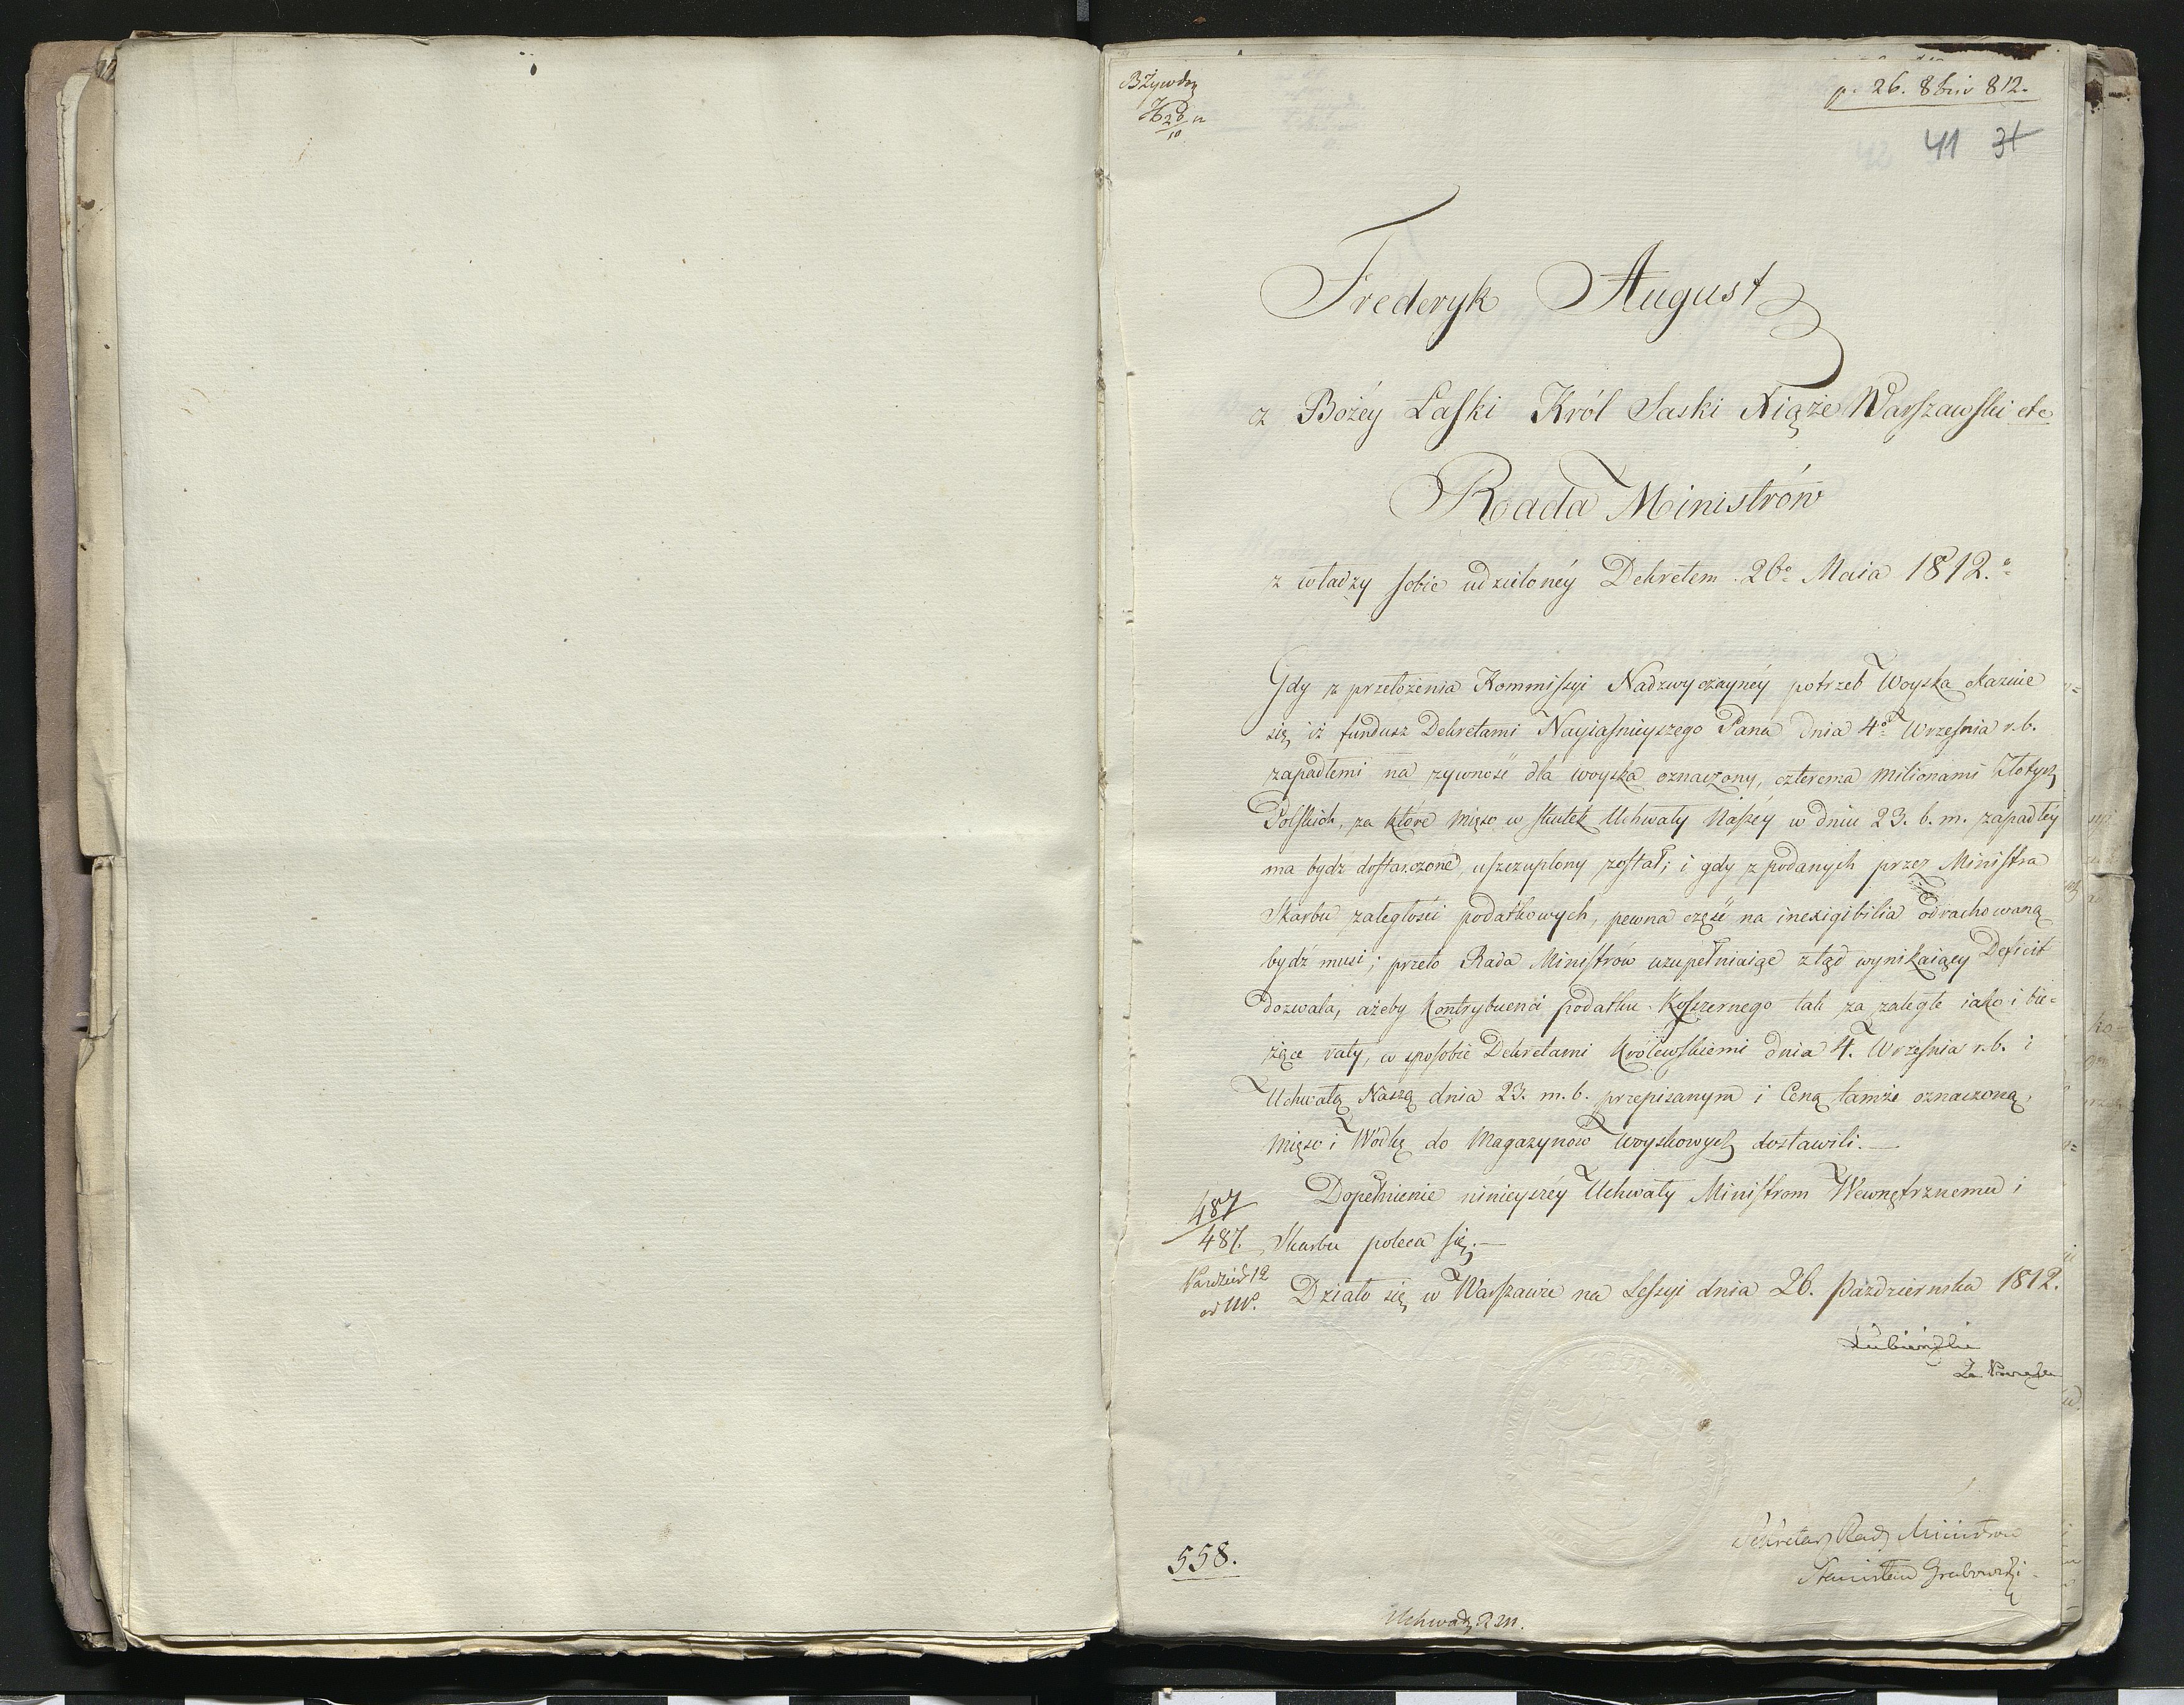 p. 26. 8bris 812.
41 31
Frederyk August
z Bożey Łaski Król Saski Xiąże Warszawski etc
Rada Ministrów
z władzy sobie udzieloney Dekretem 26º Maia 1812.º
Gdy z przełożenia Kommissyi Nadzwyczayney potrzeb Woyska okazuie
się, iż fundusz Dekretami Nayiaśnieyszego Pana dnia 4º Września r. b.
zapadłemi na żywność dla woyska oznaczony, czterema milionami Złotych
Polskich, za które mięso w skutek Uchwały Naszey w dniu 23. b. m. zapadłey
ma bydź dostarczone, uszczuplony został; i gdy z podanych przez Ministra
Skarbu zaległości podatkowych, pewna część na inexigibilia odrachowaną
bydź musi; przeto Rada Ministrów uzupełniaiąc ztąd wynikaiący Deficit
dozwala, ażeby kontrybuenci podatku Koszernego tak za zaległe iako i bie=
żące raty, w sposobie Dekretami Królewskiemi dnia 4. Września r. b. i
Uchwałą Naszą dnia 23. m. b. przepisanym i Ceną tamże oznaczoną,
Mięso i Wódkę do Magazynów Woyskowych dostawili.—
Dopełnienie ninieyszey Uchwały Ministrom Wewnętrznemu i
487
487. Skarbu poleca się.—
Działo się w Warszawie na Sessyi dnia 26. Października 1812.
Łubieński
Sekretarz Rady Ministrów
Stanisław Grabowski
558.
Uchwały R M.